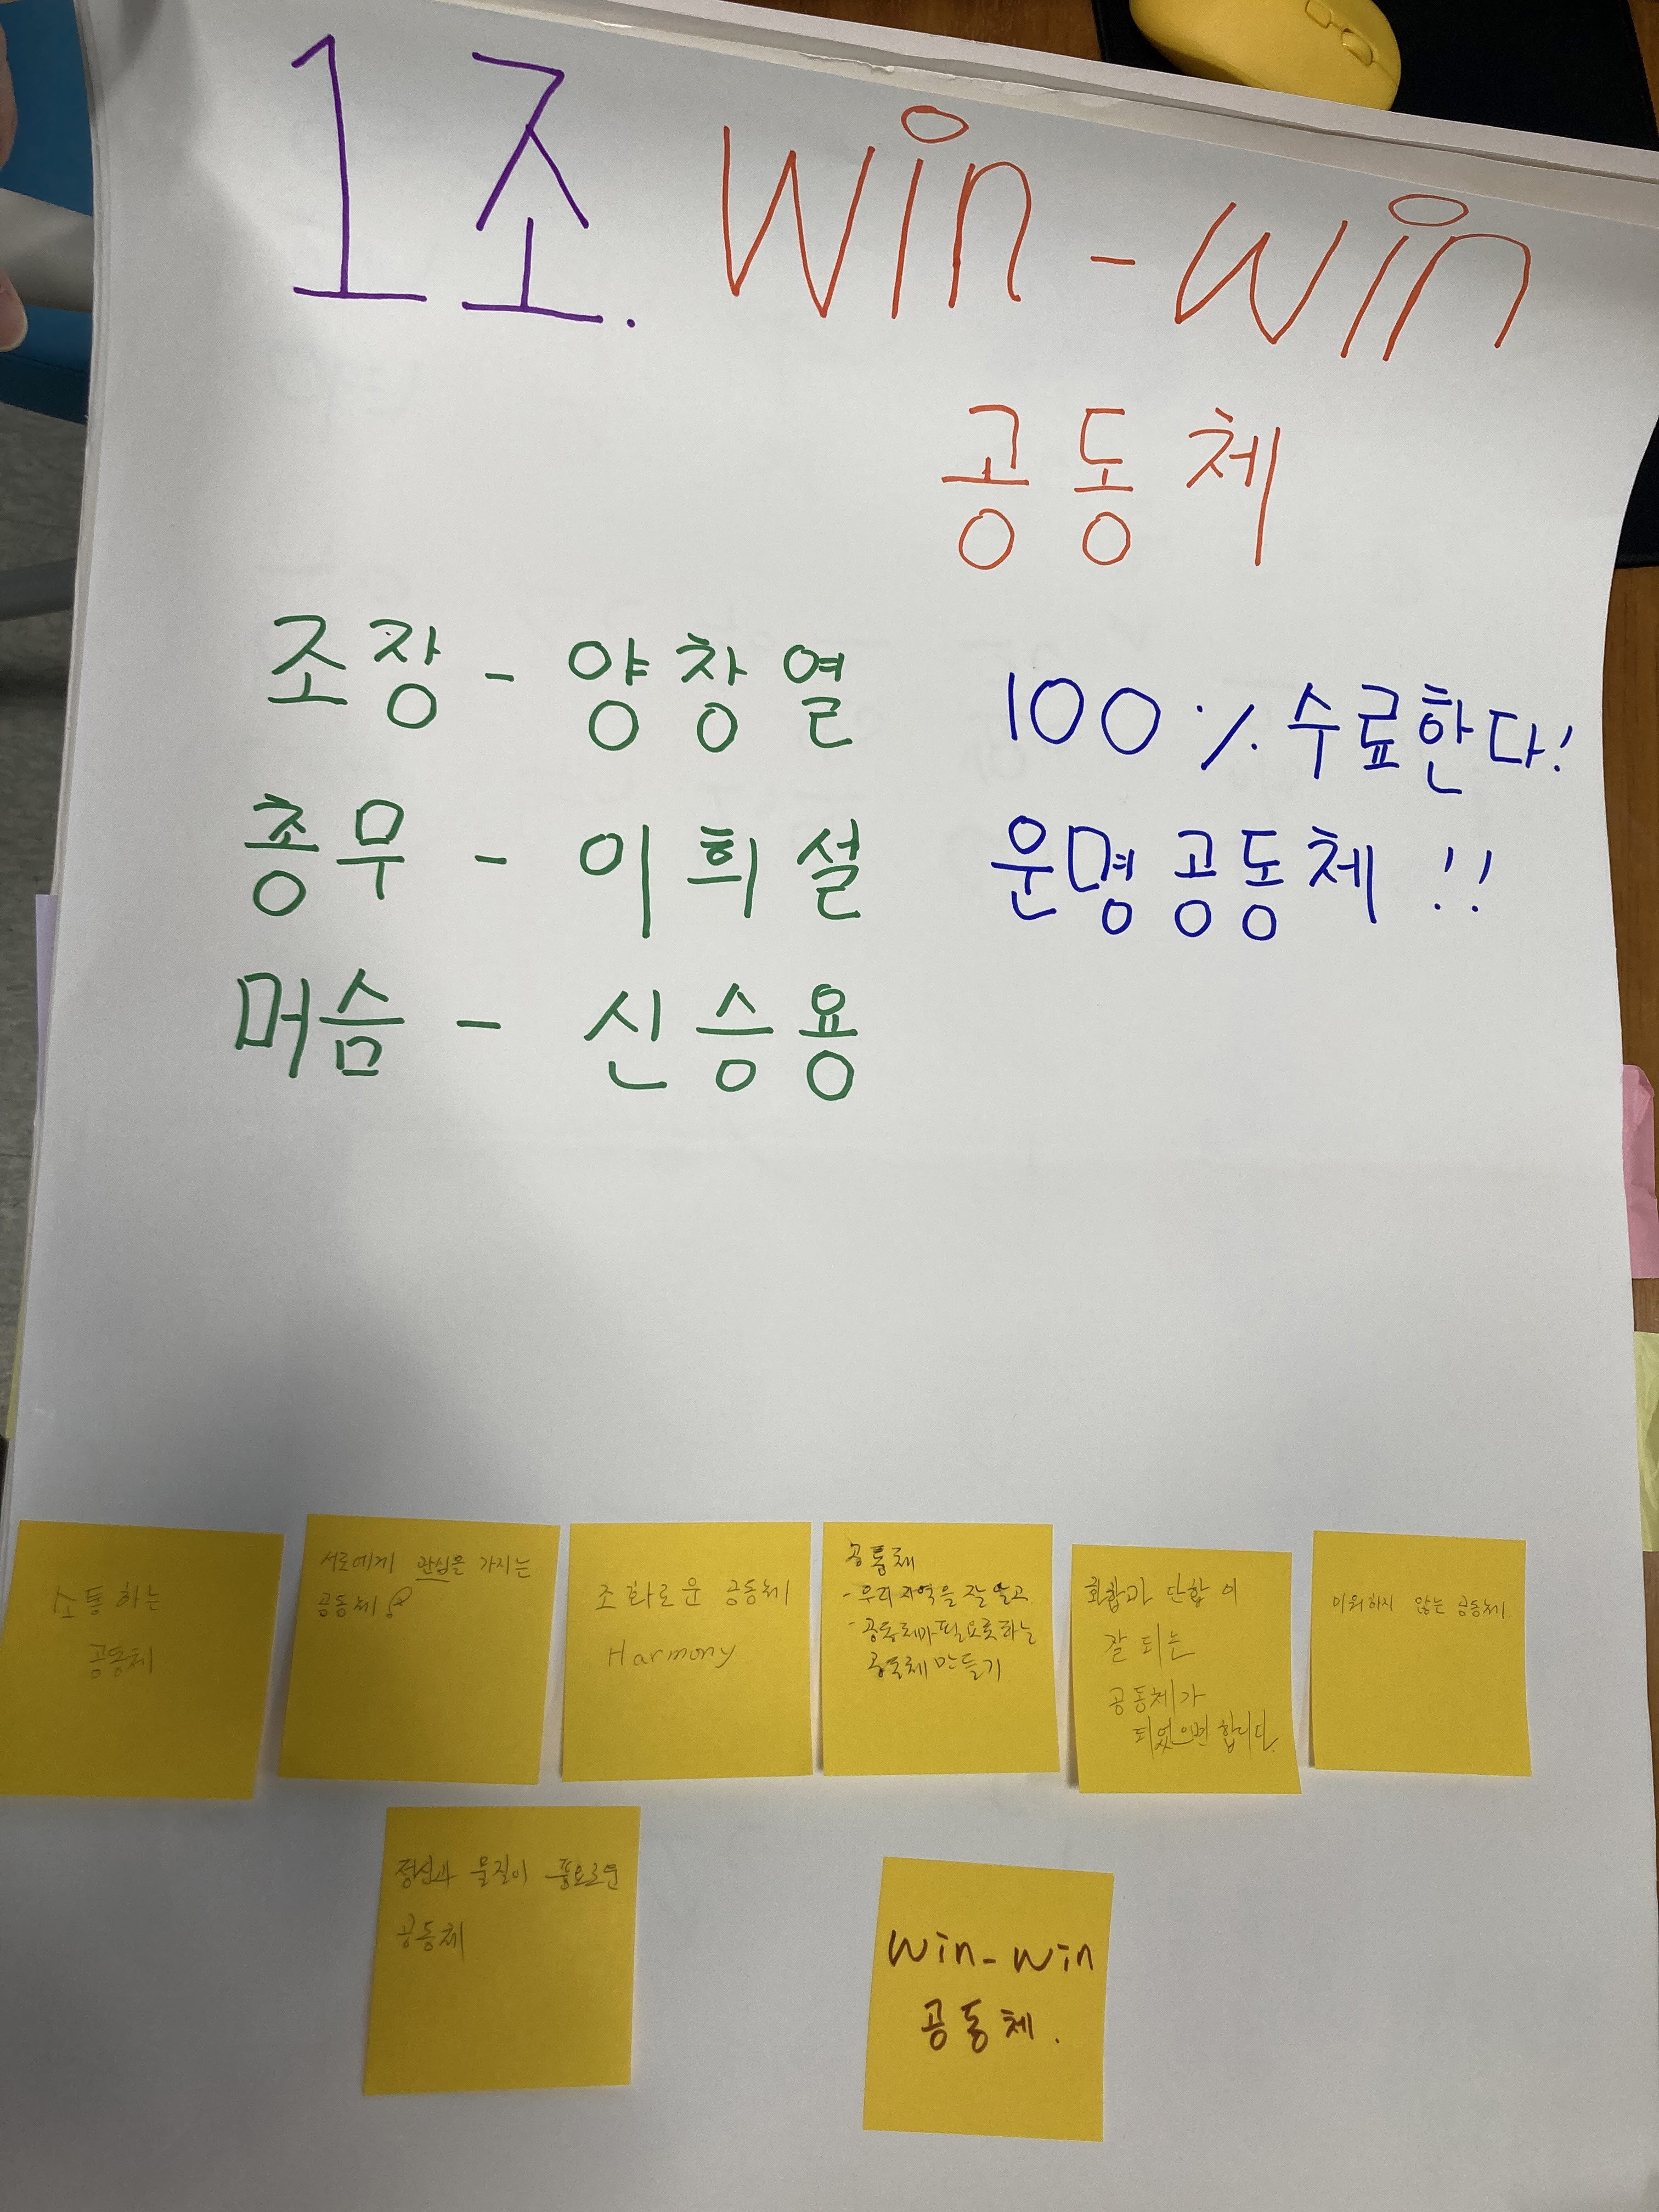 1조. win-win
공동체
조장 - 양창열
총무 - 이희설
머슴 - 신승용
100% 수료한다!
운명공동체 !!
소통하는
공동체
서로에게 관심을 가지는
공동체
조화로운 공동체
Harmony
공통체
- 우리 지역을 잘 알고
- 공통체가 필요로 하는
공통체 만들기
화합과 단합이
잘 되는
공동체가
되었으면 합니다.
미워하지 않는 공동체
정신과 물질이 풍요로운
공동체
Win-Win
공동체.